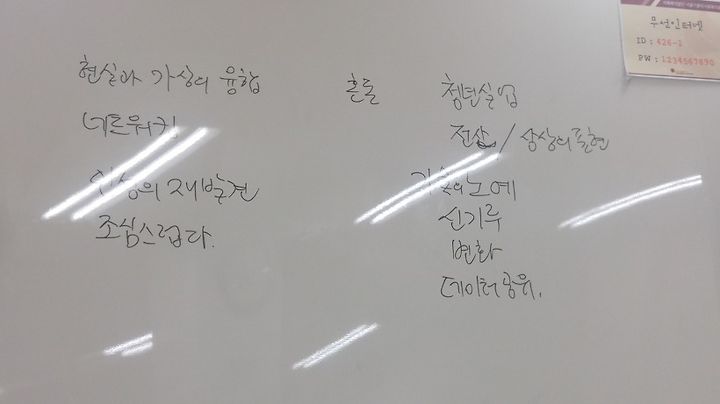 현실과 가상의 융합
네트워킹
일상의 재발견
조심스럽다.
혼돈
청년실업
전산 / 상상의 표현
기술의 노예
신기루
변화
데이터 공유.
무선인터넷
ID : 426-1
PW : 1234567890